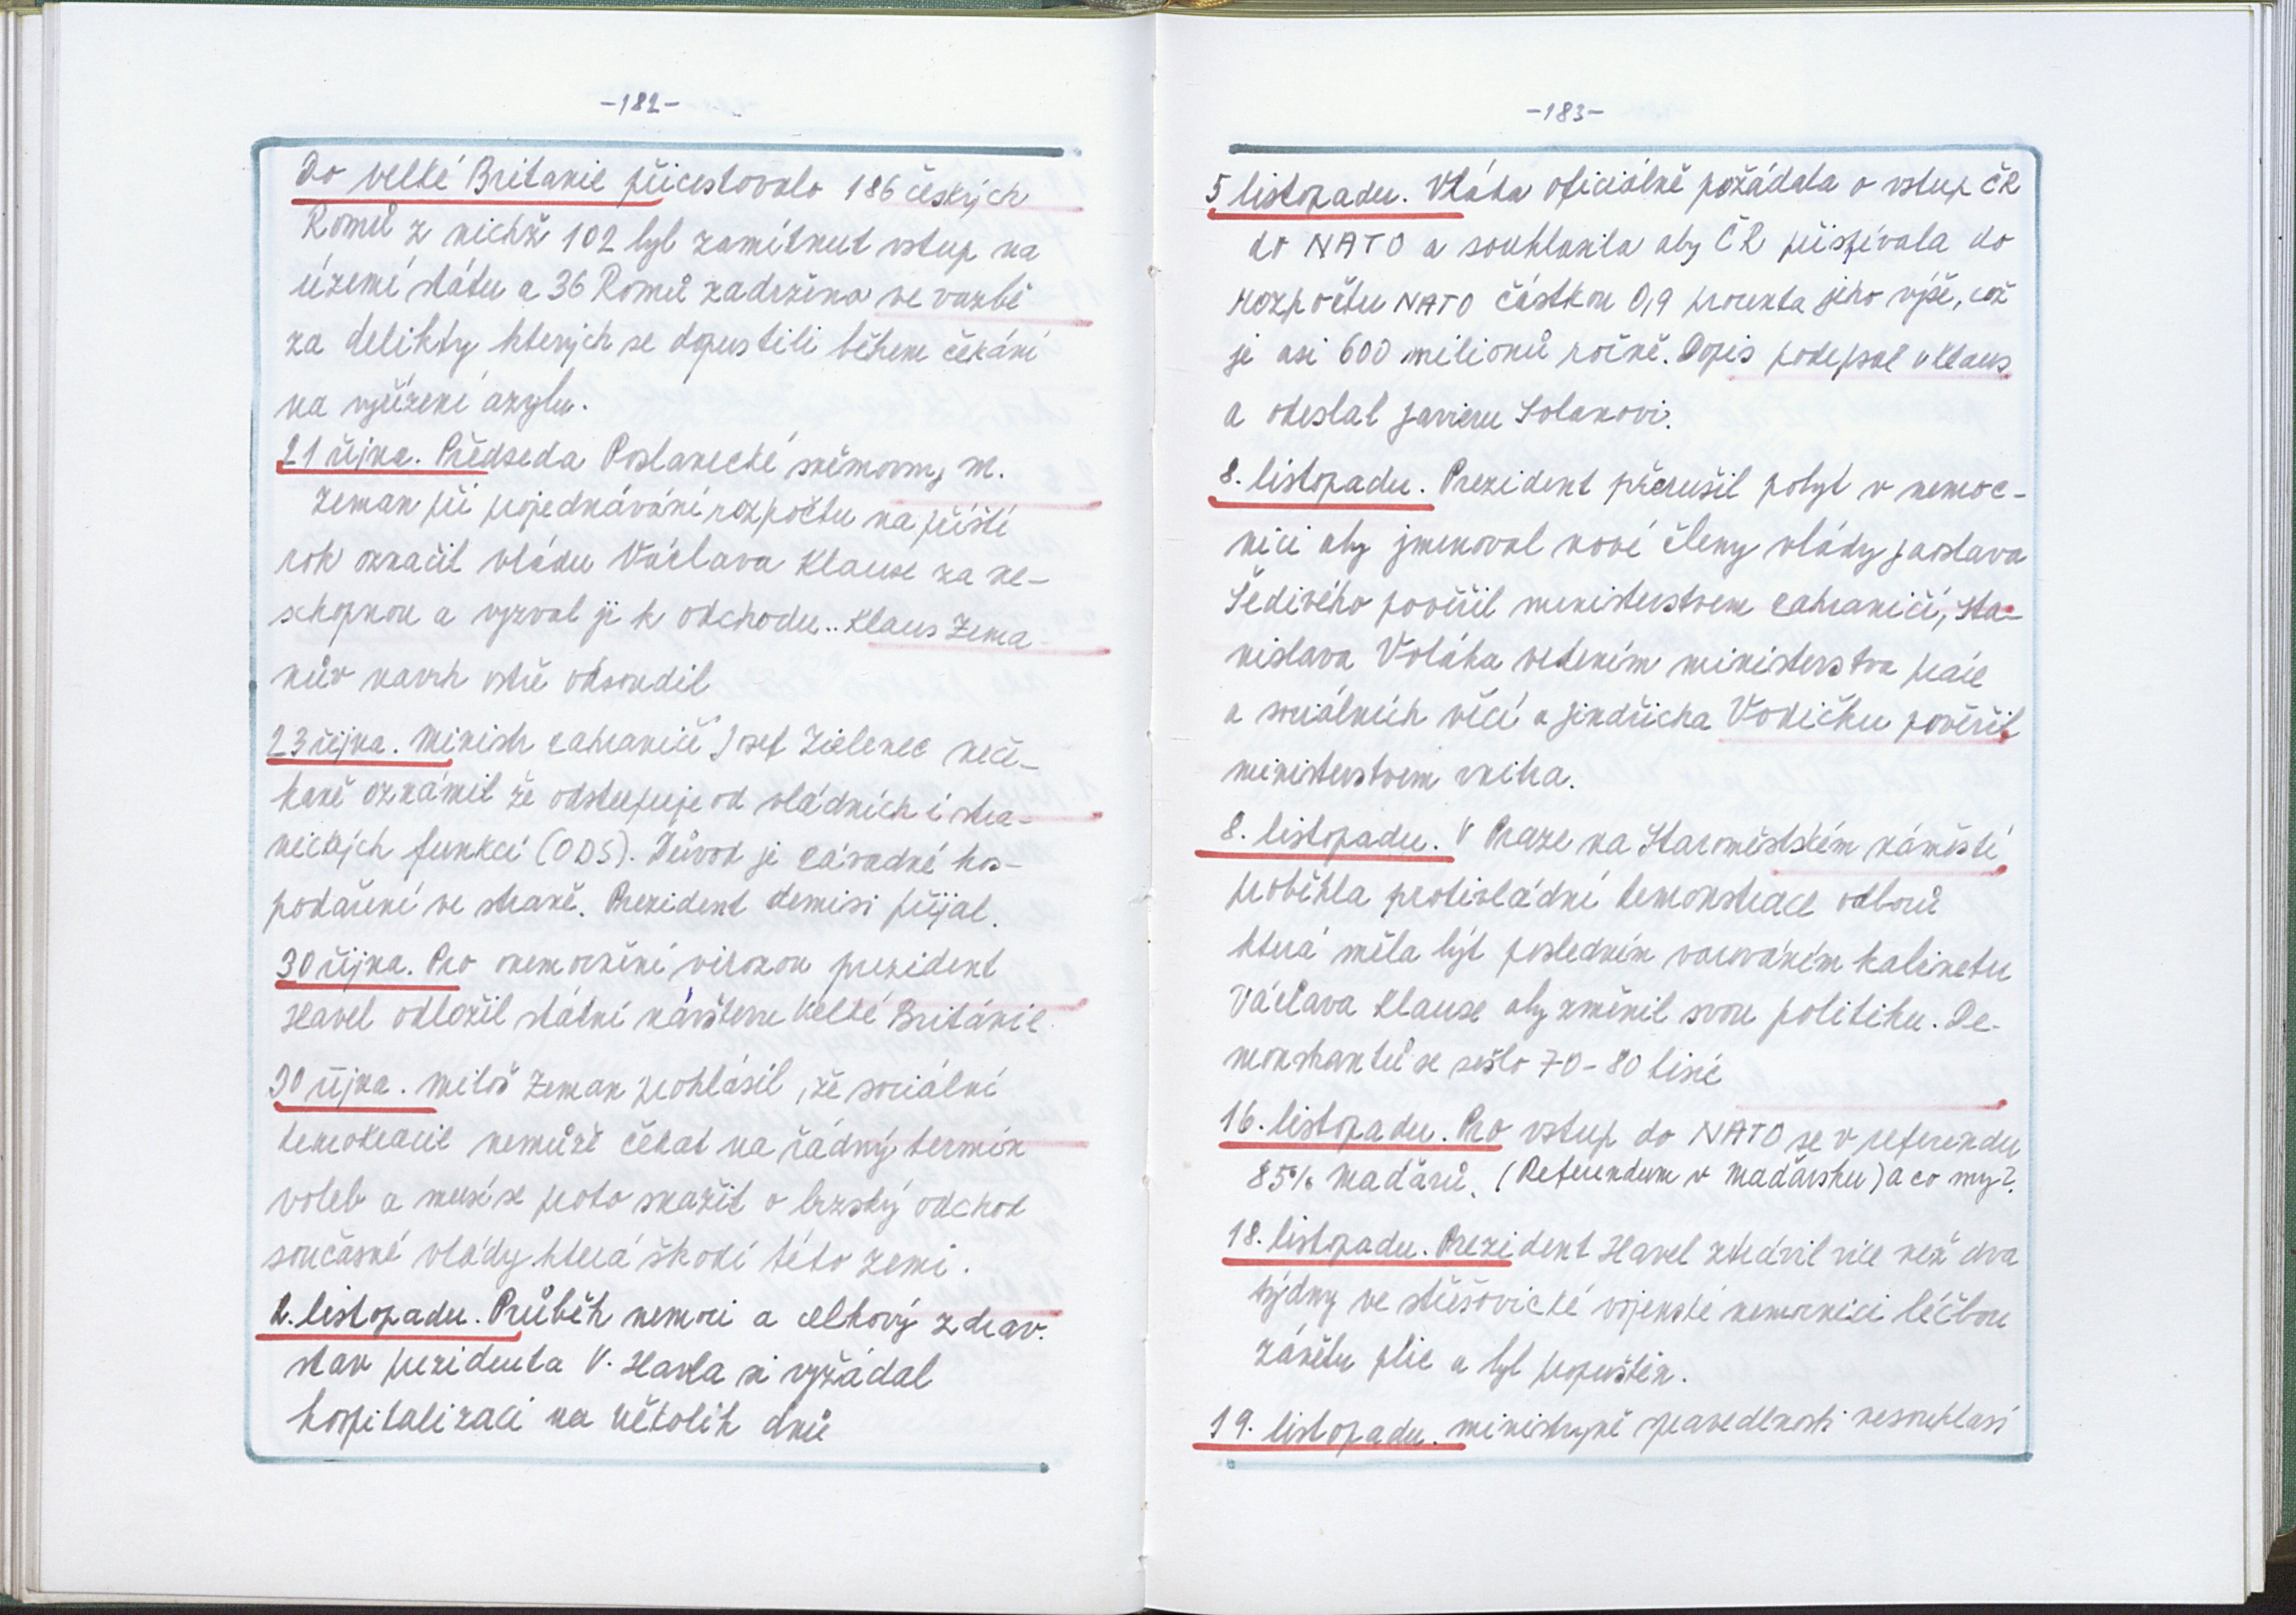 -182-
Do velké Britanie přicestovalo 186 českých
Romů z nichž 102 byl zamítnut vstup na
území státu a 36 Romů zadržena ve vazbě
za delikty kterých se dopustili během čekání
na vyřízení azylu.
21 října. Předseda Poslanecké sněmovny M.
Zeman při projednávání rozpočtu na příští
rok označil vládu Václava Klause za ne-
schopnou a vyzval ji k odchodu.. Klaus Zema
nův navrh ostře odsoudil
23 října. Ministr zahraničí Josef Zielenec neče-
kaně oznámil že odstupuje od vládních i stra-
nických funkcí (ODS). Důvod je závadné hos-
podaření ve straně. Prezident demisi přijal.
30 října. Pro onemocnění virozou prezident
Havel odložil státní návštevu Velké Británie.
30 října. Miloš Zeman prohlásil, že sociální
demokracie nemůže čekat na řádný termín
voleb a musí se proto snažit o brzský odchod
současné vlády která škodí této zemi.
2. listopadu. Průběh nemoci a celkový zdrav.
stav prezidenta V. Havla si vyžádal
hospitalizaci na několik dnů
-183-
5 listopadu. Vláda oficiálně požádala o vstup ČR
do NATO a souhlasila aby ČR přispívala do
rozpočtu NATO částkou 0,9 procenta jeho výše, což
je asi 600 milionů ročně. Dopis podepsal V Klaus
a odeslal Javieru Solanovi.
8. listopadu. Prezident přerušil pobyt v nemoc-
nici aby jmenoval nové členy vlády Jaoslava
Šedivého pověřil ministerstvem zahraničí, Sta-
nislava Voláka vedením ministerstva práce
a sociálních věcí a Jindřicha Vodičku pověřil
ministerstvem vnitra.
8. listopadu. V Praze na Staroměstském náměstí
proběhla protivládní demonstrace odborů
která měla být posledním varováním kabinetu
Václava Klause aby změnil svou politiku. De-
monstrantů se sešlo 70-80 tisíc
16. listopadu. Pro vstup do NATO se v referendu
85% Maďarů. (Referendum v Maďarsku) a co my?.
18. listopadu. Prezident Havel ztrávil více než dva
týdny ve střešovické vojenské nemocnici léčbou
zánětu plic a byl propuštěn.
19. listopadu. ministryně spravedlnosti nesouhlasí